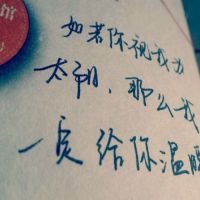 馆
如若你视我为
太阳、那么我
一定给你温暖